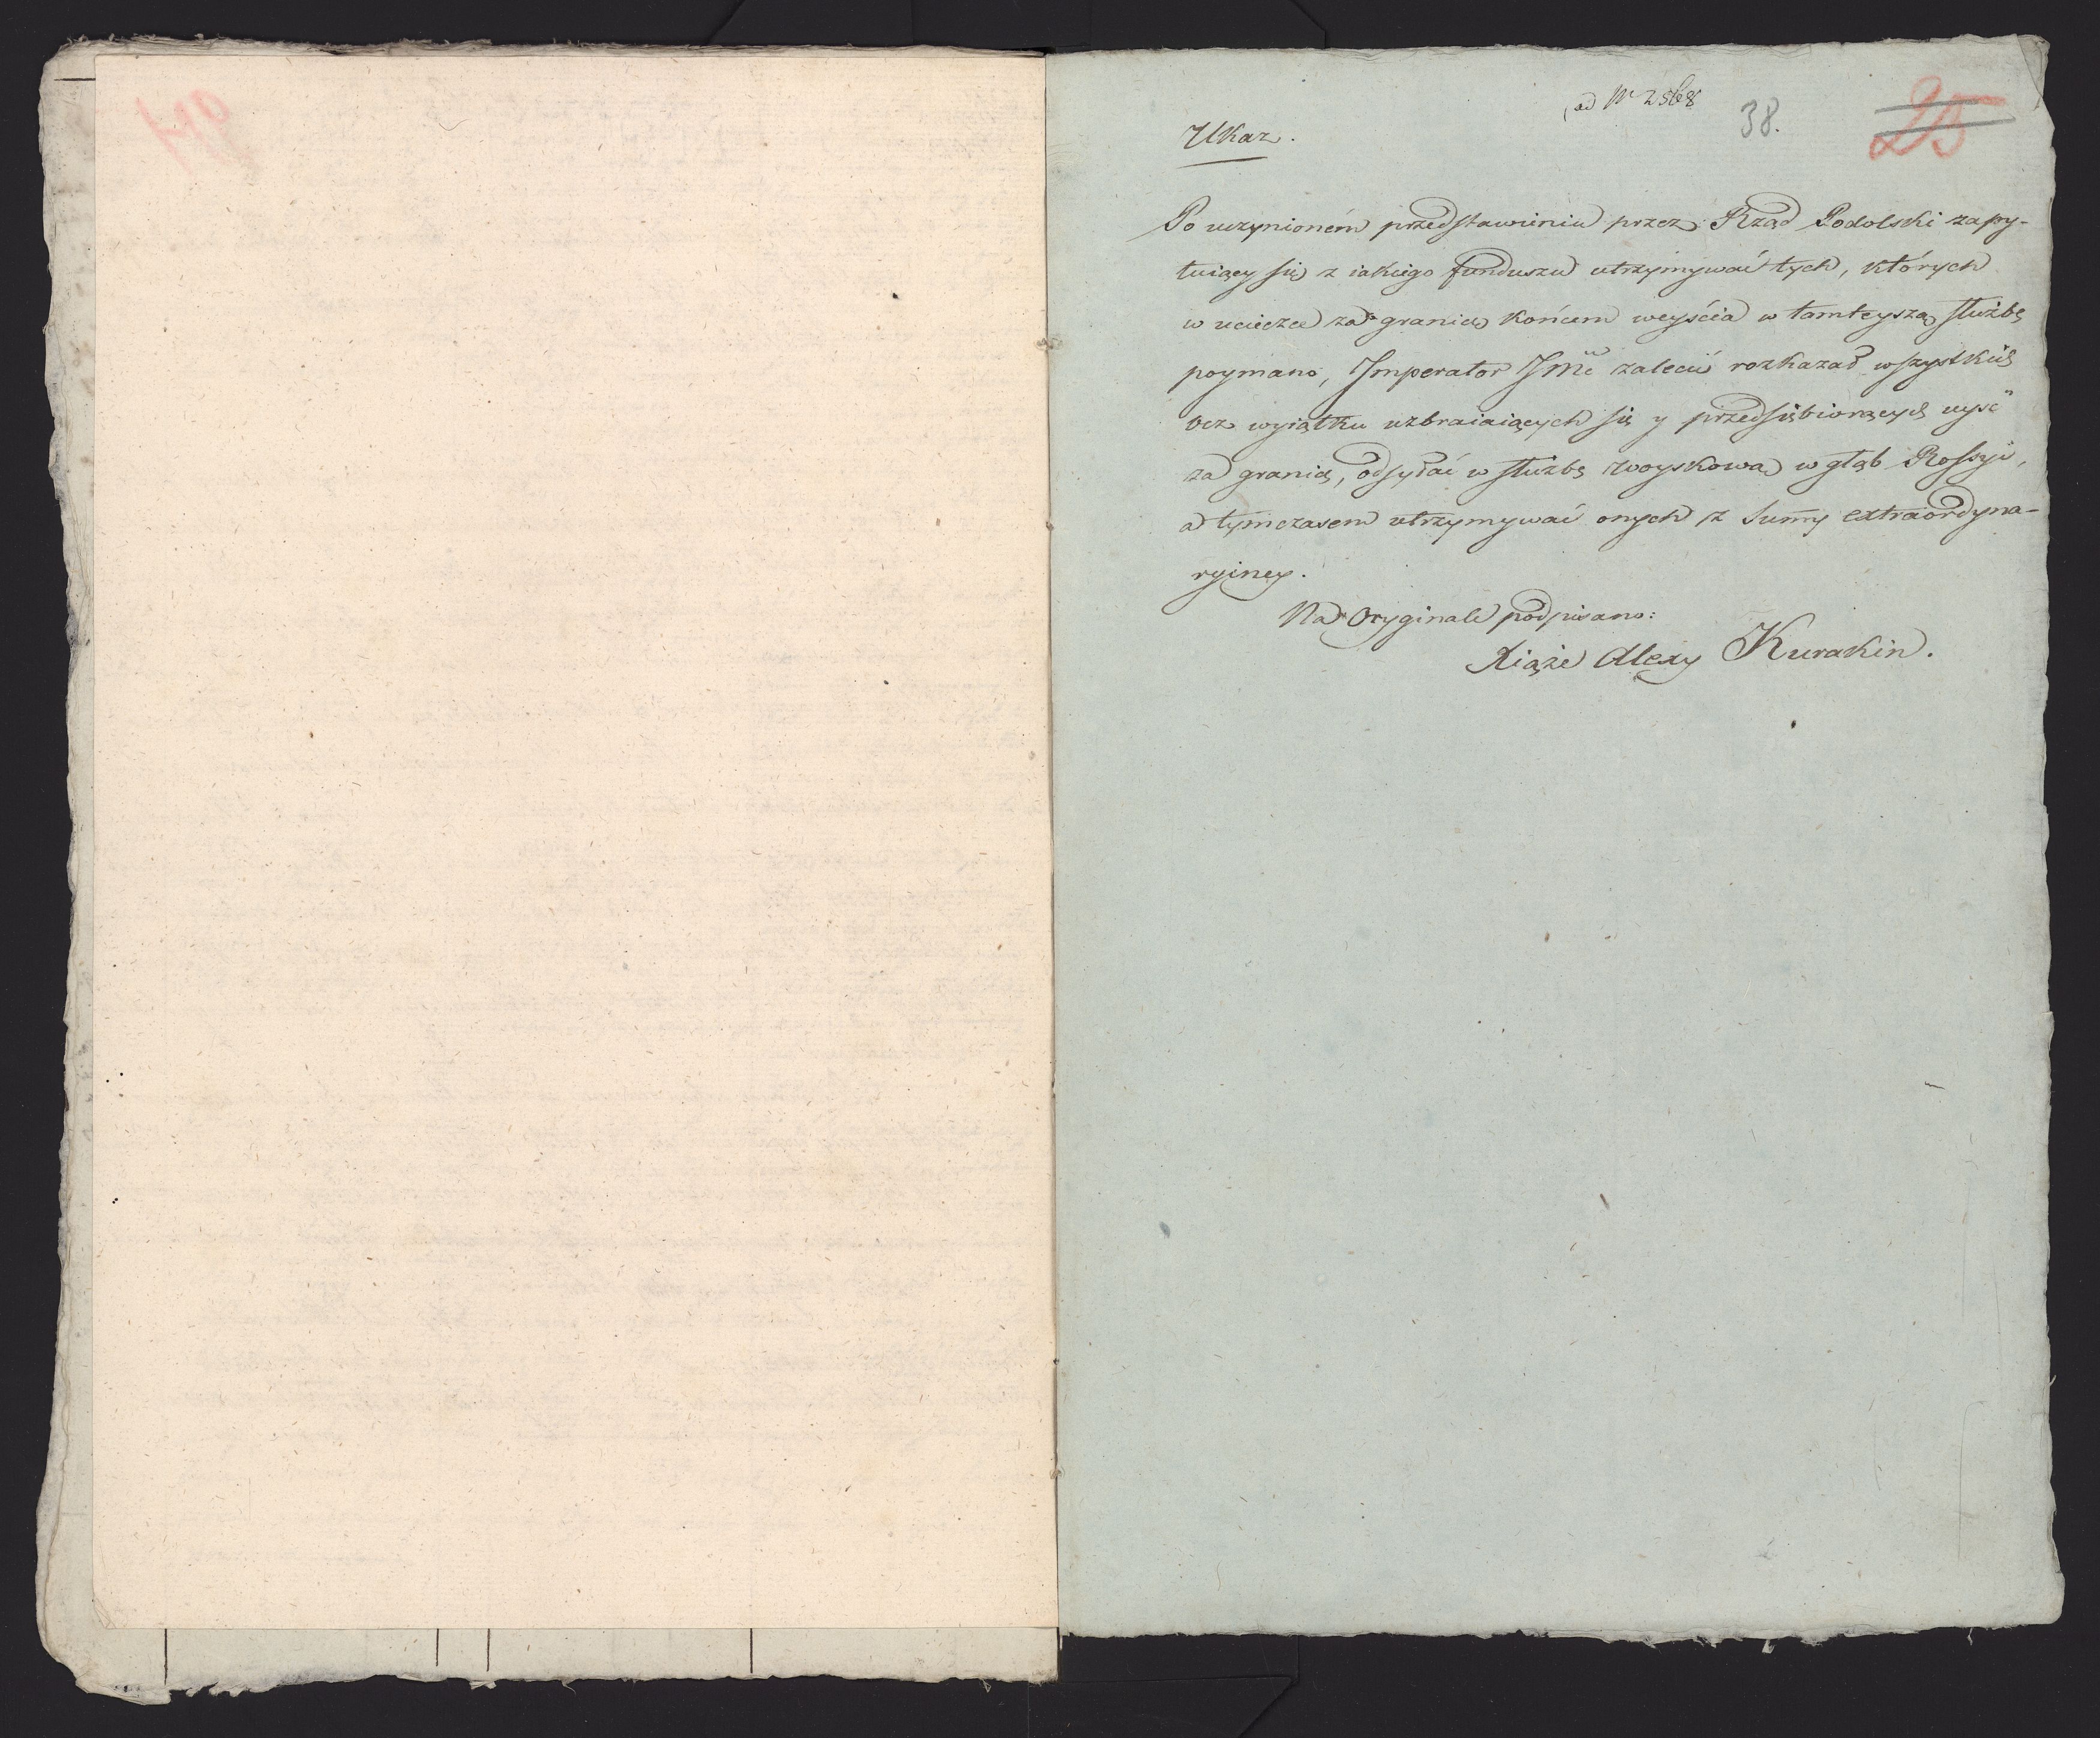 ad Nr 2568
38.
25
Ukaz.
Po uczynioném przedstawieniu przez Rząd Podolski zapy-
tuiący się z iakiego funduszu utrzymywać tych, których
w ucieczce za granicę końcem weyścia w tamteyszą służbę
poymano, Imperator JMć zalecić rozkazał wszystkich
bez wyiątku uzbraiaiących się y przedsiębiorących wyść
za granicę, odsyłać w służbę woyskową w głąb Rossyi,
a tymczasem utrzymywać onych z Sumy extraordyna-
ryiney.
Na Oryginale podpisano:
Xiąże Alexy Kurakin.